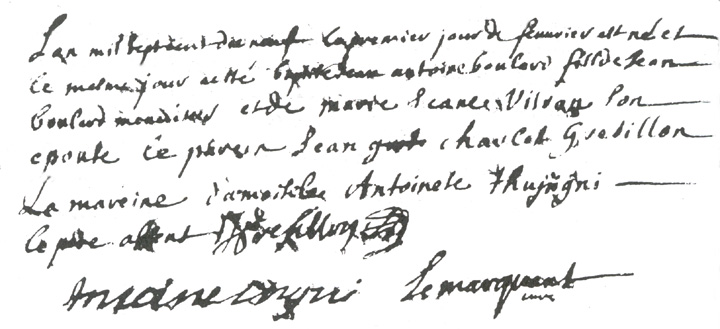 Lan mil sept cent dix neuf le premier jour de feuvrier est né et
le mesme jour a esté baptisé Jean antoine boulard fils de Jean
boulard et de marie Jeanne son
epouse le parein Jean charlot Gredillon
La mareine damoiselle Antoinete
le père absent Gredillon
Lemarquant